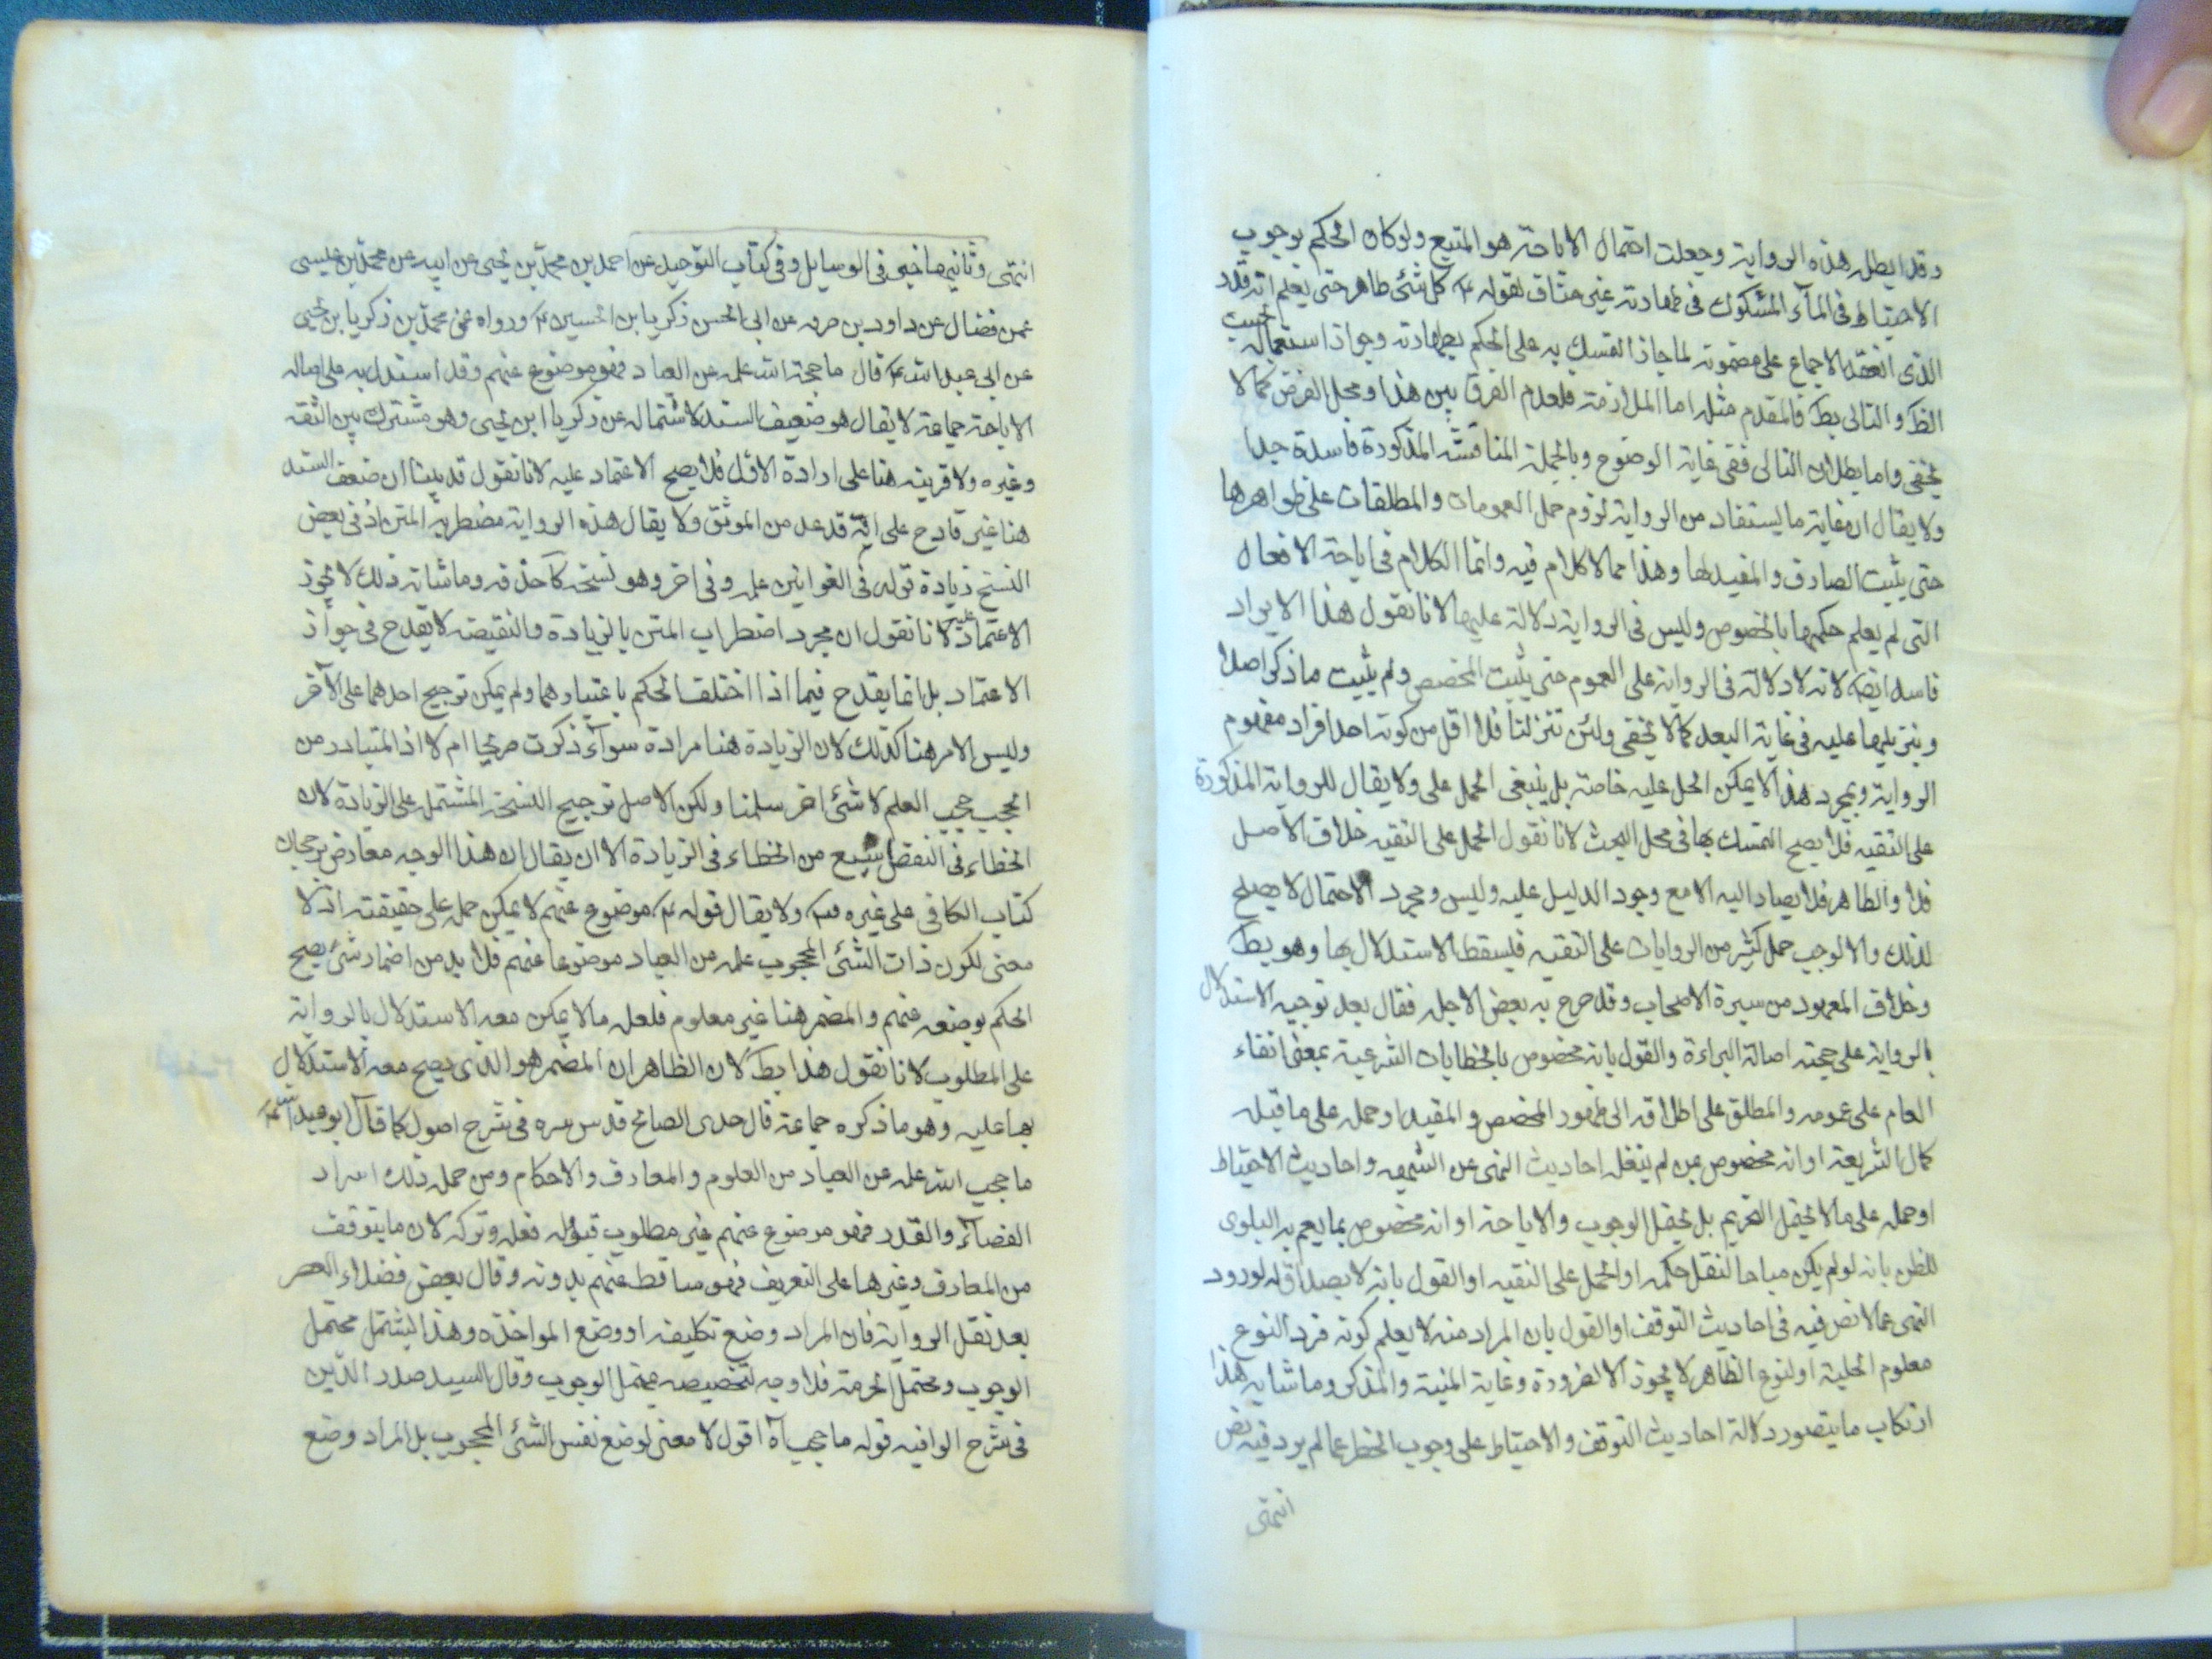 وقد ابطل هذه الرواية وجعلت احتمال الاباحة هو المتبع ولو كان الحكم بوجوب
الاحتياط فى المآء المشكوك فى طهارته غير مناف لقوله ع كل شئ طاهر حتى يعلم انه قذر
الذى انعقد الاجماع على مضمونه لما جاز التمسك به على الحكم بطهارته وجواز استعماله بحسب
الظ والتالى بط فالمقدم مثله اما الملازمة فلعدم الفرق بين هذا ومحل الفرض كما لا
يخفى واما بطلان التالى ففى غاية الوضوح وبالجملة المناقشة المذكورة فاسدة جدا
ولا يقال ان غاية ما يستفاد من الرواية لزوم حمل العمومات والمطلقات على ظواهرها
حتى يثبت الصارف والمقيد لها وهذا مما لا كلام فيه وانما الكلام فى اباحة الافعال
التى لم يعلم حكمها بالخصوص وليس فى الرواية دلالة عليها لانا نقول هذا الايراد
فاسد ايضا لانه لا دلالة فى الرواية على العموم حتى يثبت المخصص ولم يثبت ما ذكر اصلا
وتنزيلها عليه فى غاية البعد كما لا يخفى ولئن تنزلنا فلا اقل من كونه احد افراد مفهوم
الرواية وبمجرد هذا لا يمكن الحمل عليه خاصة بل ينبغى الحمل على ولا يقال للرواية المذكورة
على التقيه فلا يصح التمسك بها فى محل البحث لانا نقول الحمل على التقيه خلاف الاصل
فلا والظاهر فلا يصار اليه الا مع وجود الدليل عليه وليس ومجرد الاحتمال لا يصلح
لذلك والا لوجب حمل كثير من الروايات على التقيه فيسقط الاستدلال بها وهو بط
وخلاف المعهود من سيرة الاصحاب وقد صرح به بعض الاجله فقال بعد توجيه الاستدلال
بالرواية على حجته اصالة البراءة والقول بانه مخصوص بالخطابات الشرعية بمعنى انقاء
العام على عمومه والمطلق على اطلاقه الى ظهور المخصص والمقيد او حمله على ما قبله
كمال الشريعة او انه مخصوص بمن لم ينقله احاديث النهى عن الشبهه واحاديث الاحتياط
او حمله على ما لا يحتمل التحريم بل يحتمل الوجوب والاباحة او انه مخصوص بما يعم به البلوى
للظن بانه لو لم يكن مباحا لنقل حكمه او الحمل على التقيه او القول بانه لا يصداق له لورود
النهى عما لا نص فيه فى احاديث التوقف او القول بان المراد منه لا يعلم كونه فرد النوع
معلوم الحلية او لنوع الظاهر لا يجوز الا لضرورة وغاية المنية والمذكر وما شابه هذا
ارتكاب ما يتصور دلالة احاديث التوقف والاحتياط على وجوب الحظر عما لم يرد فيه نص
انتهى
انتهى وثانيها خبر فى الوسايل وفى كتاب التوحيد عن احمد بن محمد بن يحيى عن ابيه عن محمد بن عيسى
عمن فضال عن داود بن صرمه عن ابى الحسن زكريا بن الحسين ع ورواه عن محمد بن زكريا بن يحيى
عن ابى عبد الله ع قال ما حجبه الله علمه عن العباد فهو موضوع عنهم وقد استدل به على اصاله
الاباحة جماعة لا يقال هو ضعيف السند لاشتماله عن زكريا ابن يحيى وهو مشترك بين الثقه
وغيره ولا قرينه هنا على ارادة الاول فلا يصح الاعتماد عليه لانا نقول قد بينا ان ضعف السند
هنا غير قادح على انه قد عد من الموثق ولا يقال هذه الرواية مضطربة المتن اذ فى بعض
النسخ زيادة قوله فى الغوانين علمه وفى اخر وهو نسخه كا حذفه وما شانه ذلك لا يجوز
الاعتماد عليه لانا نقول ان مجرد اضطراب المتن بالزيادة والنقيصه لا يقدح فى جواز
الاعتماد بل انما يقدح فيما اذا اختلف الحكم باعتبارهما ولم يمكن ترجيح احدهما على الآخر
وليس الامر هنا كذلك لان الزيادة هنا مرادة سوآء ذكرت صريحا ام لا اذ المتبادر من
الحجب حجب العلم لا شئ اخر سلمنا ولكن الاصل ترجيح النسخة المشتمل على الزيادة لان
الخطاء فى النقص اشيع من الخطاء فى الزيادة الا ان يقال ان هذا الوجه معارض برجحان
كتاب الكافى على غيره ولا يقال قوله ع موضوع عنهم لا يمكن حمله على حقيقته اذ لا
معنى لكون ذات الشئ المحجوب علمه من العباد موضوعا عنهم فلا بد من اضمار شئ يصح
الحكم بوضعه عنهم والمضمر هنا غير معلوم فلعله ما لا يمكن معه الاستدلال بالرواية
على المطلوب لانا نقول هذا بط لان الظاهر ان المضمر هو الذى يصح معه الاستدلال
بها عليه وهو ما ذكره جماعة قال جدى الصالح قدس سره فى شرح اصول كما قال ابو عبد الله ع
ما حجب الله علمه عن العباد من العلوم والمعارف والاحكام ومن جمله ذلك اسرار
القضآء والقدر فهو موضوع عنهم غير مطلوب قبوله فعله وتركه لان ما يتوقف
من المعارف وغيرها على التعريف فهو ساقط عنهم بدونه وقال بعض فضلاء العصر
بعد نقل الرواية فان المراد وضع تكليفه او وضع المواخذه وهذا ليشتمل محتمل
الوجوب ومحتمل الحرمة فلا وجه لتخصيصه بمحتمل الوجوب وقال السيد صدر الدين
فى شرح الوافيه قوله ما حجب آه اقول لا معنى لوضع نفس الشئ المحجوب بل المراد وضع